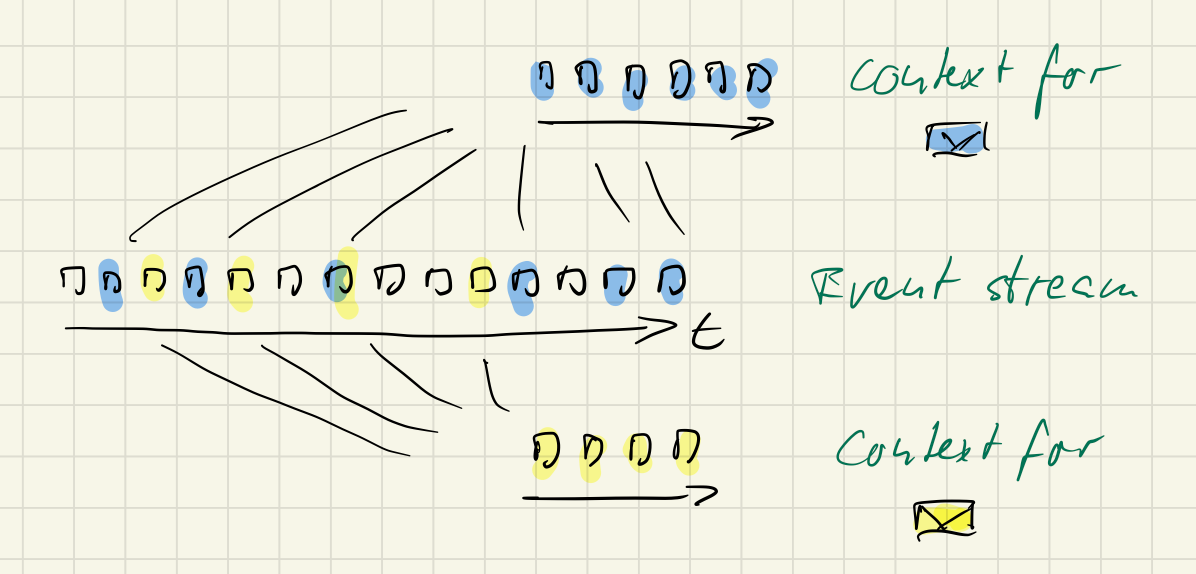 Context for
Event stream
t
Context for